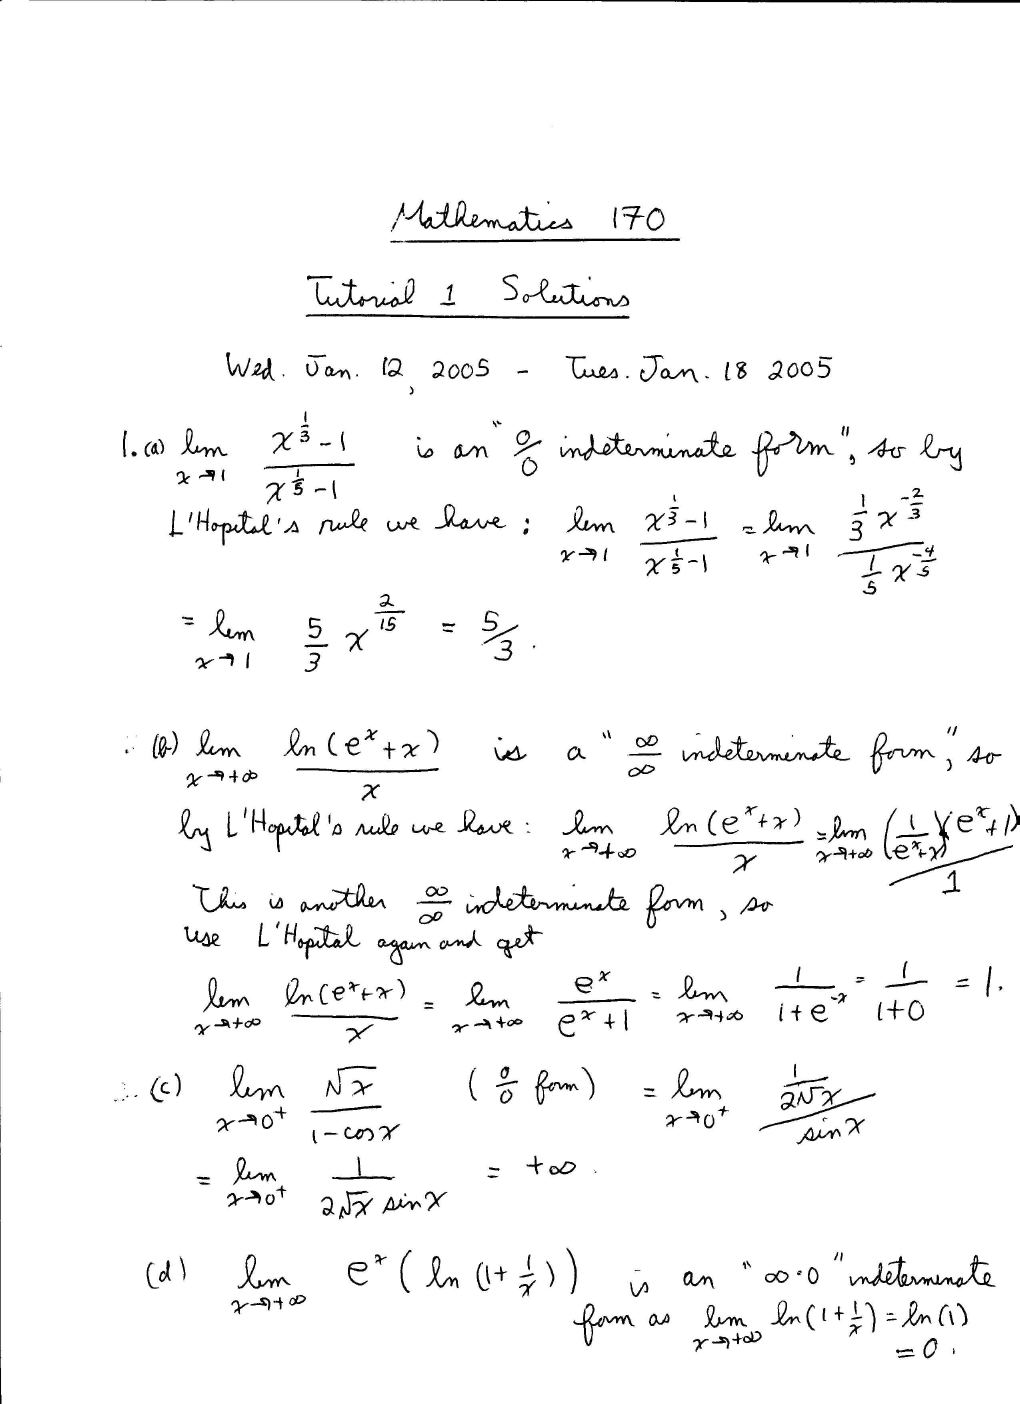 Mathematics 170
Tutorial 1 Solutions
Wed. Jan. 12, 2005 - Tues. Jan. 18 2005
1. (a) lim x→1 (x^(1/3) - 1)/(x^(1/5) - 1) is an "0/0 indeterminate form", so by
L'Hopital's rule we have: lim x→1 (x^(1/3) - 1)/(x^(1/5) - 1) = lim x→1 (1/3 x^(-2/3))/(1/5 x^(-4/5))
= lim x→1 5/3 x^(2/15) = 5/3.
(b) lim x→+∞ ln(e^x + x)/x is a "∞/∞ indeterminate form", so
by L'Hopital's rule we have: lim x→+∞ ln(e^x + x)/x = lim x→+∞ (1/(e^x + x))(e^x + 1)/1
This is another ∞/∞ indeterminate form, so
use L'Hopital again and get
lim x→+∞ ln(e^x + x)/x = lim x→+∞ e^x/(e^x + 1) = lim x→+∞ 1/(1 + e^(-x)) = 1/(1+0) = 1.
(c) lim x→0⁺ √x/(1 - cos x) (0/0 form) = lim x→0⁺ (1/(2√x))/sin x
= lim x→0⁺ 1/(2√x sin x) = +∞.
(d) lim x→+∞ e^x (ln(1 + 1/x)) is an "∞·0" indeterminate
form as lim x→+∞ ln(1 + 1/x) = ln(1)
= 0.